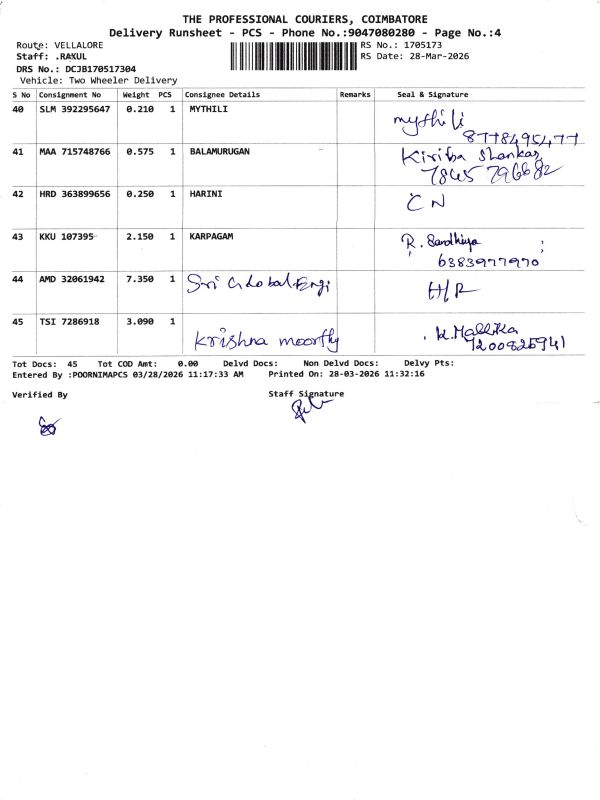 THE PROFESSIONAL COURIERS, COIMBATORE
Delivery Runsheet - PCS - Phone No.:9047080280 - Page No.:4
Route: VELLALORE RS No.: 1705173
Staff: .RAKUL RS Date: 28-Mar-2026
DRS No.: DCJB170517304
Vehicle: Two Wheeler Delivery
S No Consignment No Weight PCS Consignee Details Remarks Seal & Signature
40 SLM 392295647 0.210 1 MYTHILI mythili
8778495477
41 MAA 715748766 0.575 1 BALAMURUGAN Kiriba Shankar
7845 796682
42 HRD 363899656 0.250 1 HARINI CN
43 KKU 107395 2.150 1 KARPAGAM R. Sandhiya
6383977970
44 AMD 32061942 7.350 1 Sri Global Engi H/R
45 TSI 7286918 3.090 1 Krishna moorthy K.Mallika
7200825941
Tot Docs: 45 Tot COD Amt: 0.00 Delvd Docs: Non Delvd Docs: Delvy Pts:
Entered By :POORNIMAPCS 03/28/2026 11:17:33 AM Printed On: 28-03-2026 11:32:16
Verified By Staff Signature